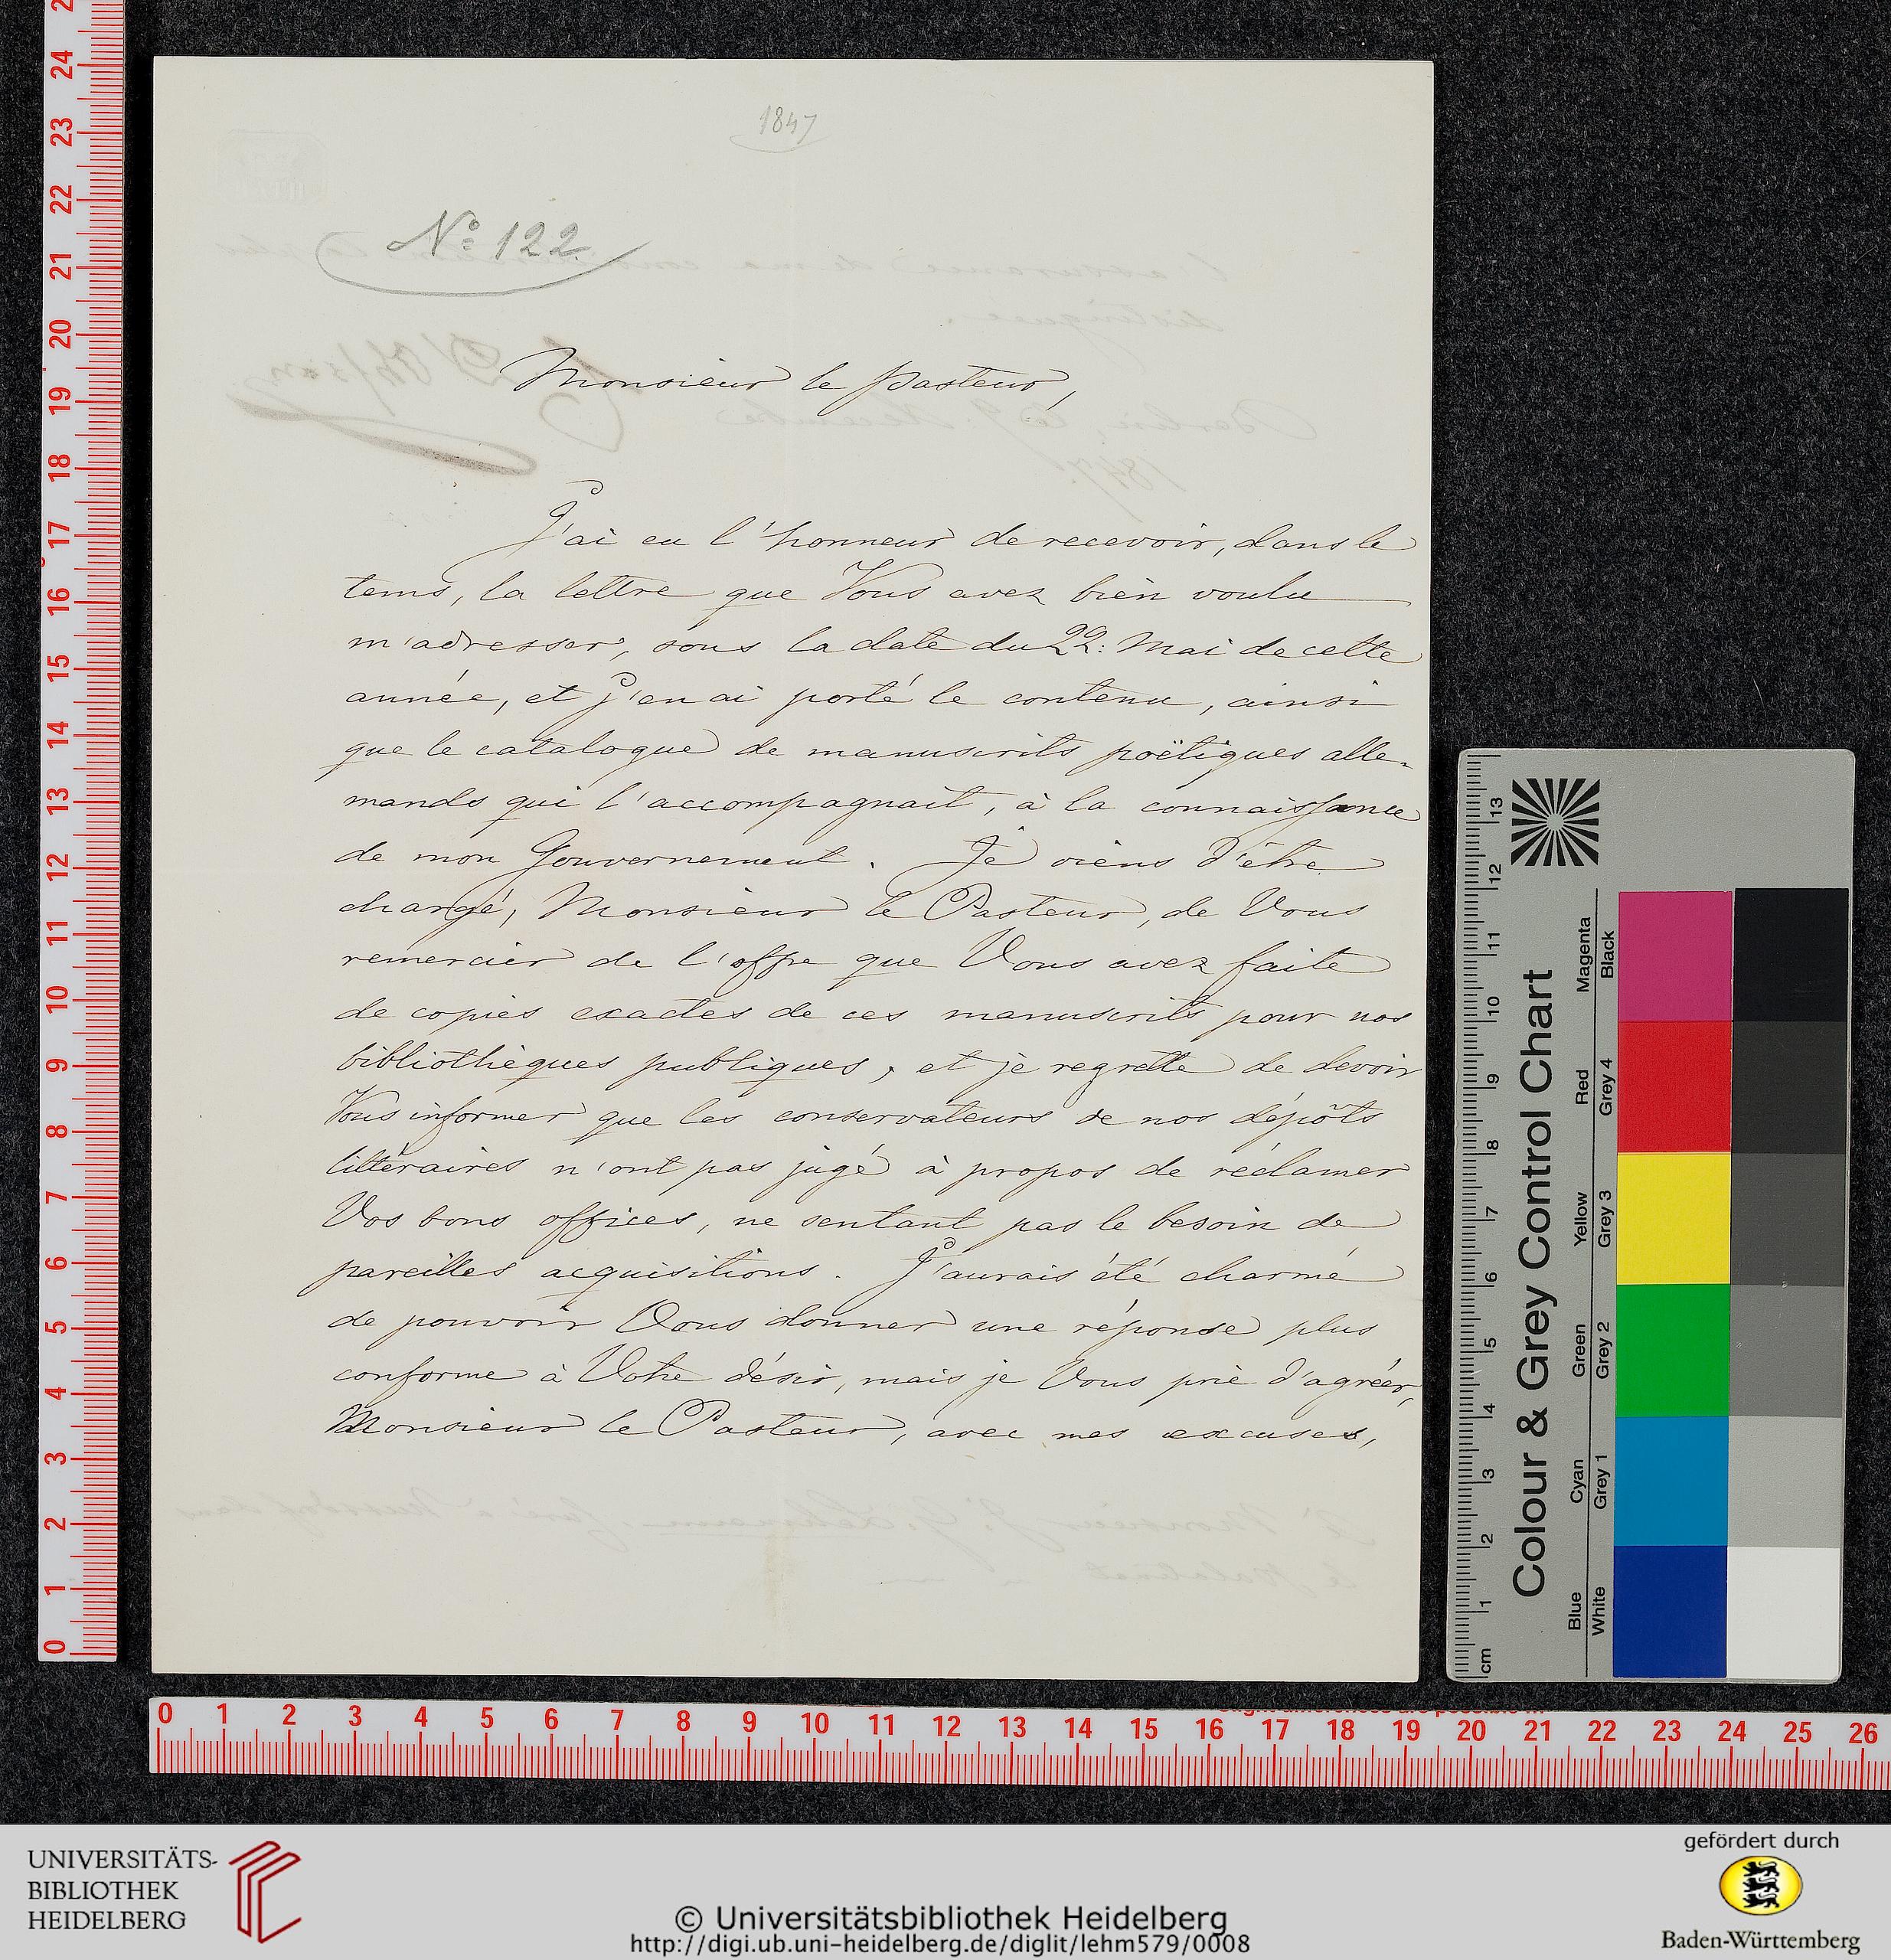 1847
No. 122.
Monsieur le Pasteur,
J'ai eu l'honneur de recevoir, dans le
tems, la lettre que Vous avez bien voulu
m'adresser, sous la date du 22: Mai de cette
année, et j'en ai porté le contenu, ainsi
que le catalogue de manuscrits poëtiques alle-
mands qui l'accompagnait, à la connaissance
de mon Gouvernement. Je viens d'être
chargé, Monsieur le Pasteur, de Vous
remercier de l'offre que Vous avez faite
de copies exactes de ces manuscrits pour nos
bibliothèques publiques, et je regrette de devoir
Vous informer que les conservateurs de nos dépôts
littéraires n'ont pas jugé à propos de réclamer
Vos bons offices, ne sentant pas le besoin de
pareilles acquisitions. J'aurais été charmé
de pouvoir Vous donner une réponse plus
conforme à Votre désir, mais je Vous prie d'agréer,
Monsieur le Pasteur, avec mes excuses,
24
23
22
21
20
19
18
17
16
15
14
13
12
11
10
9
8
7
6
5
4
3
2
1
0
0 1 2 3 4 5 6 7 8 9 10 11 12 13 14 15 16 17 18 19 20 21 22 23 24 25 26
Colour & Grey Control Chart
Blue Cyan Green Yellow Red Magenta
White Grey 1 Grey 2 Grey 3 Grey 4 Black
cm 1 2 3 4 5 6 7 8 9 10 11 12 13
UNIVERSITÄTS-
BIBLIOTHEK
HEIDELBERG
© Universitätsbibliothek Heidelberg
http://digi.ub.uni-heidelberg.de/diglit/lehm579/0008
gefördert durch
Baden-Württemberg